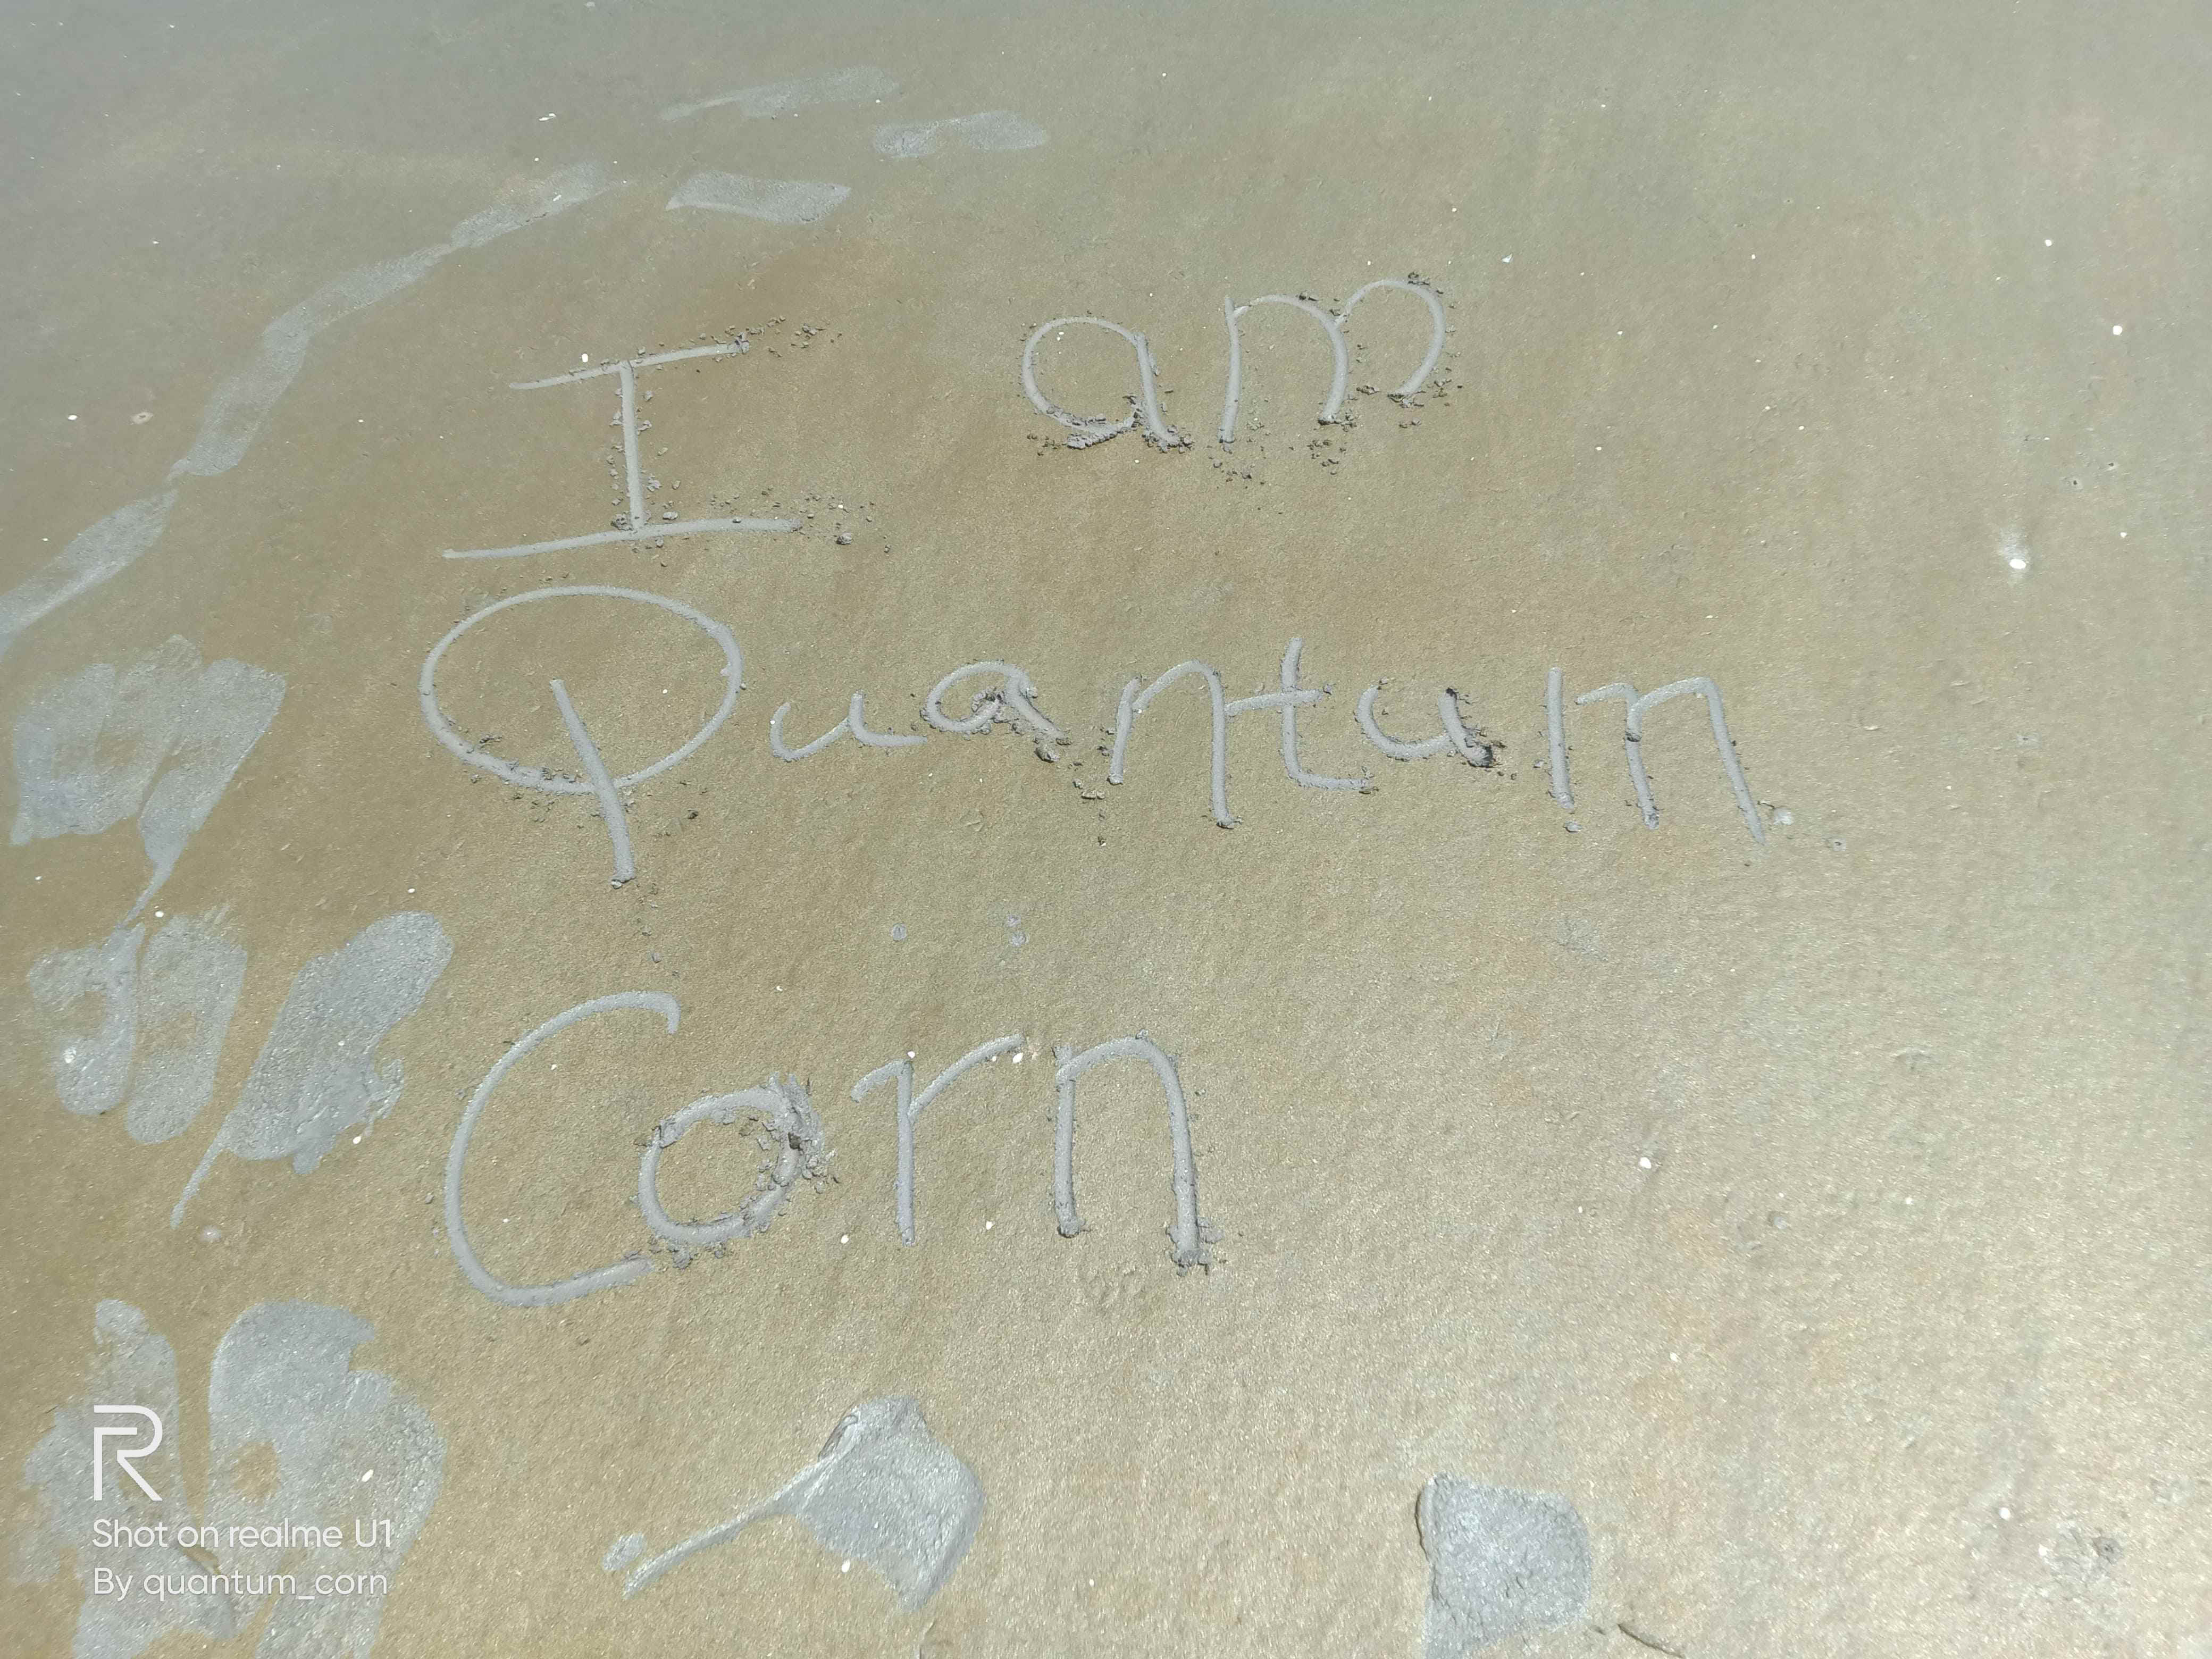 I am
Quantum
Corn
Shot on realme U1
By quantum_corn